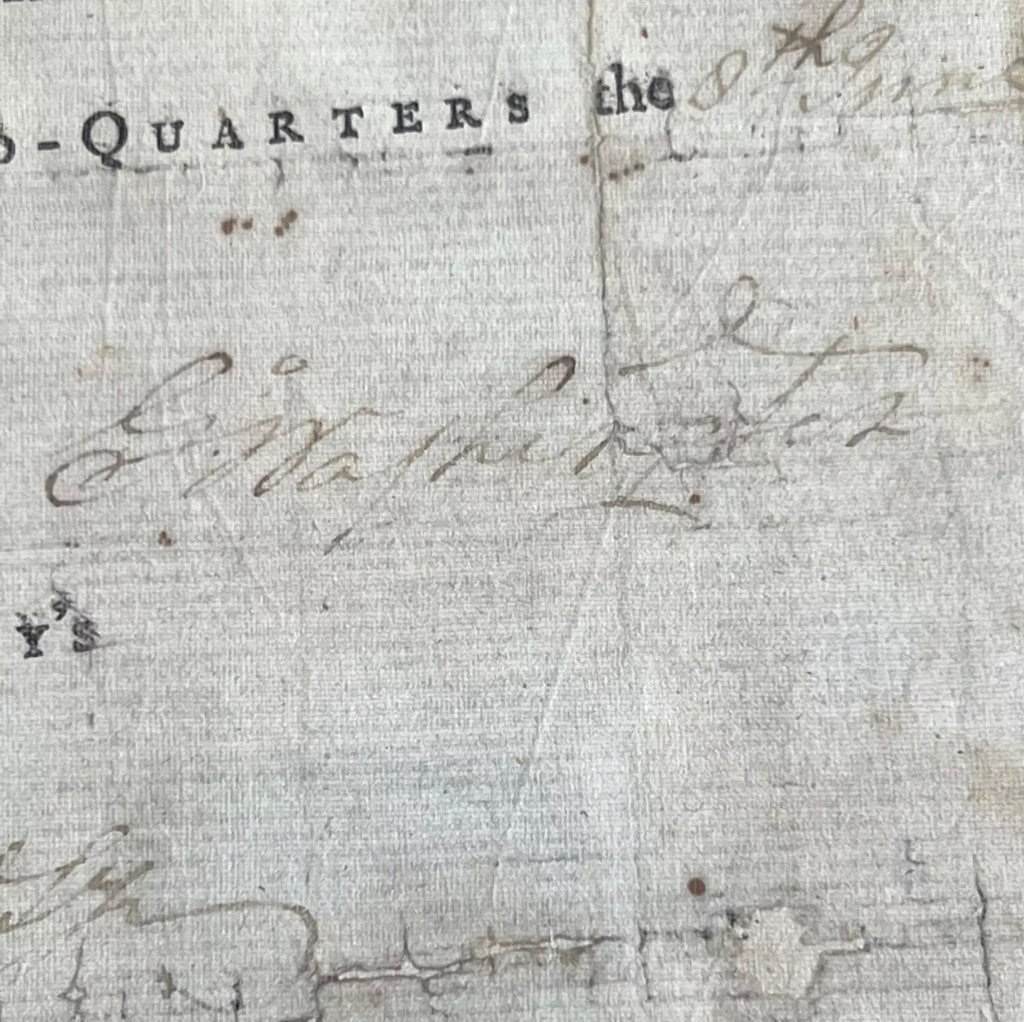 -QUARTERS the 8th June
G:Washington
Y's